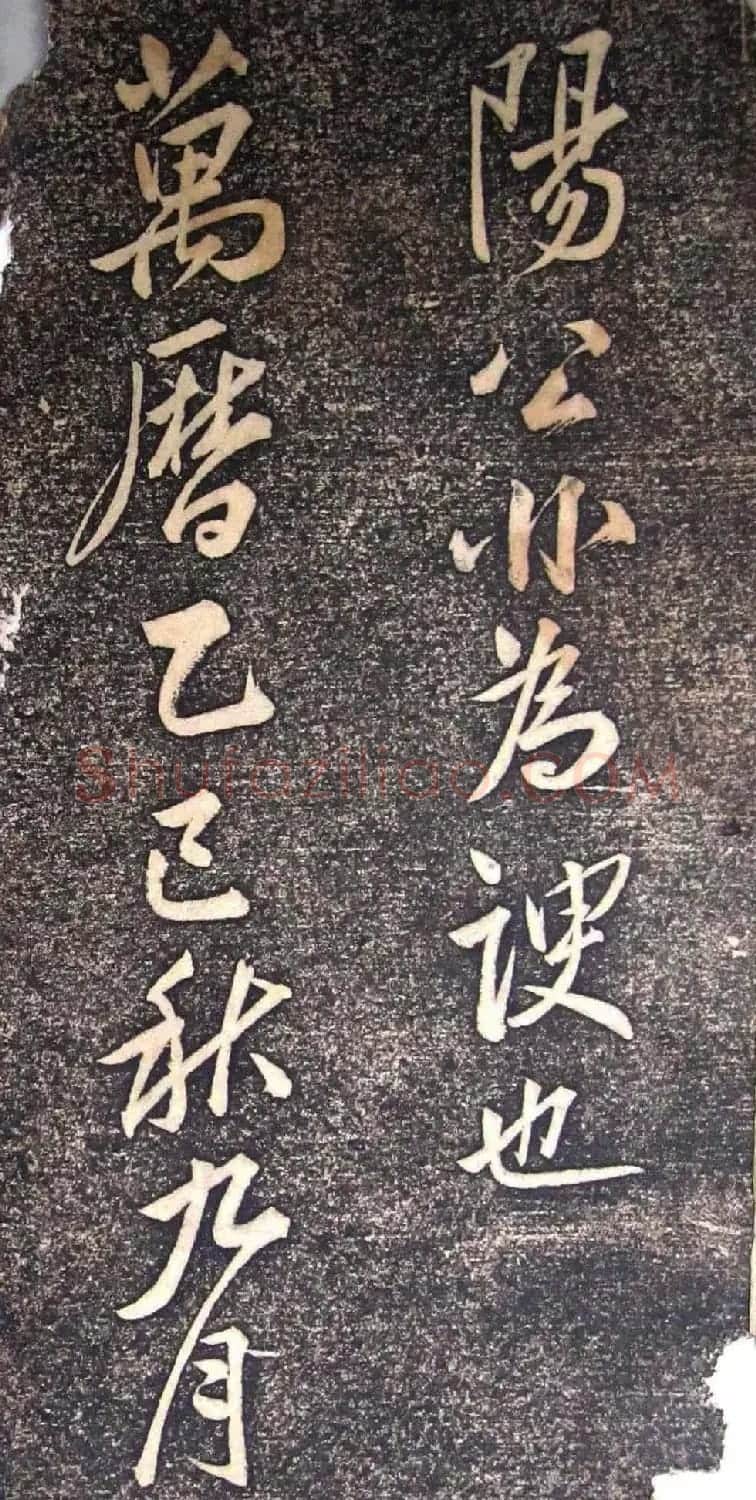 陽公亦為謏也
萬曆乙巳秋九月
Shufaziliao.COM